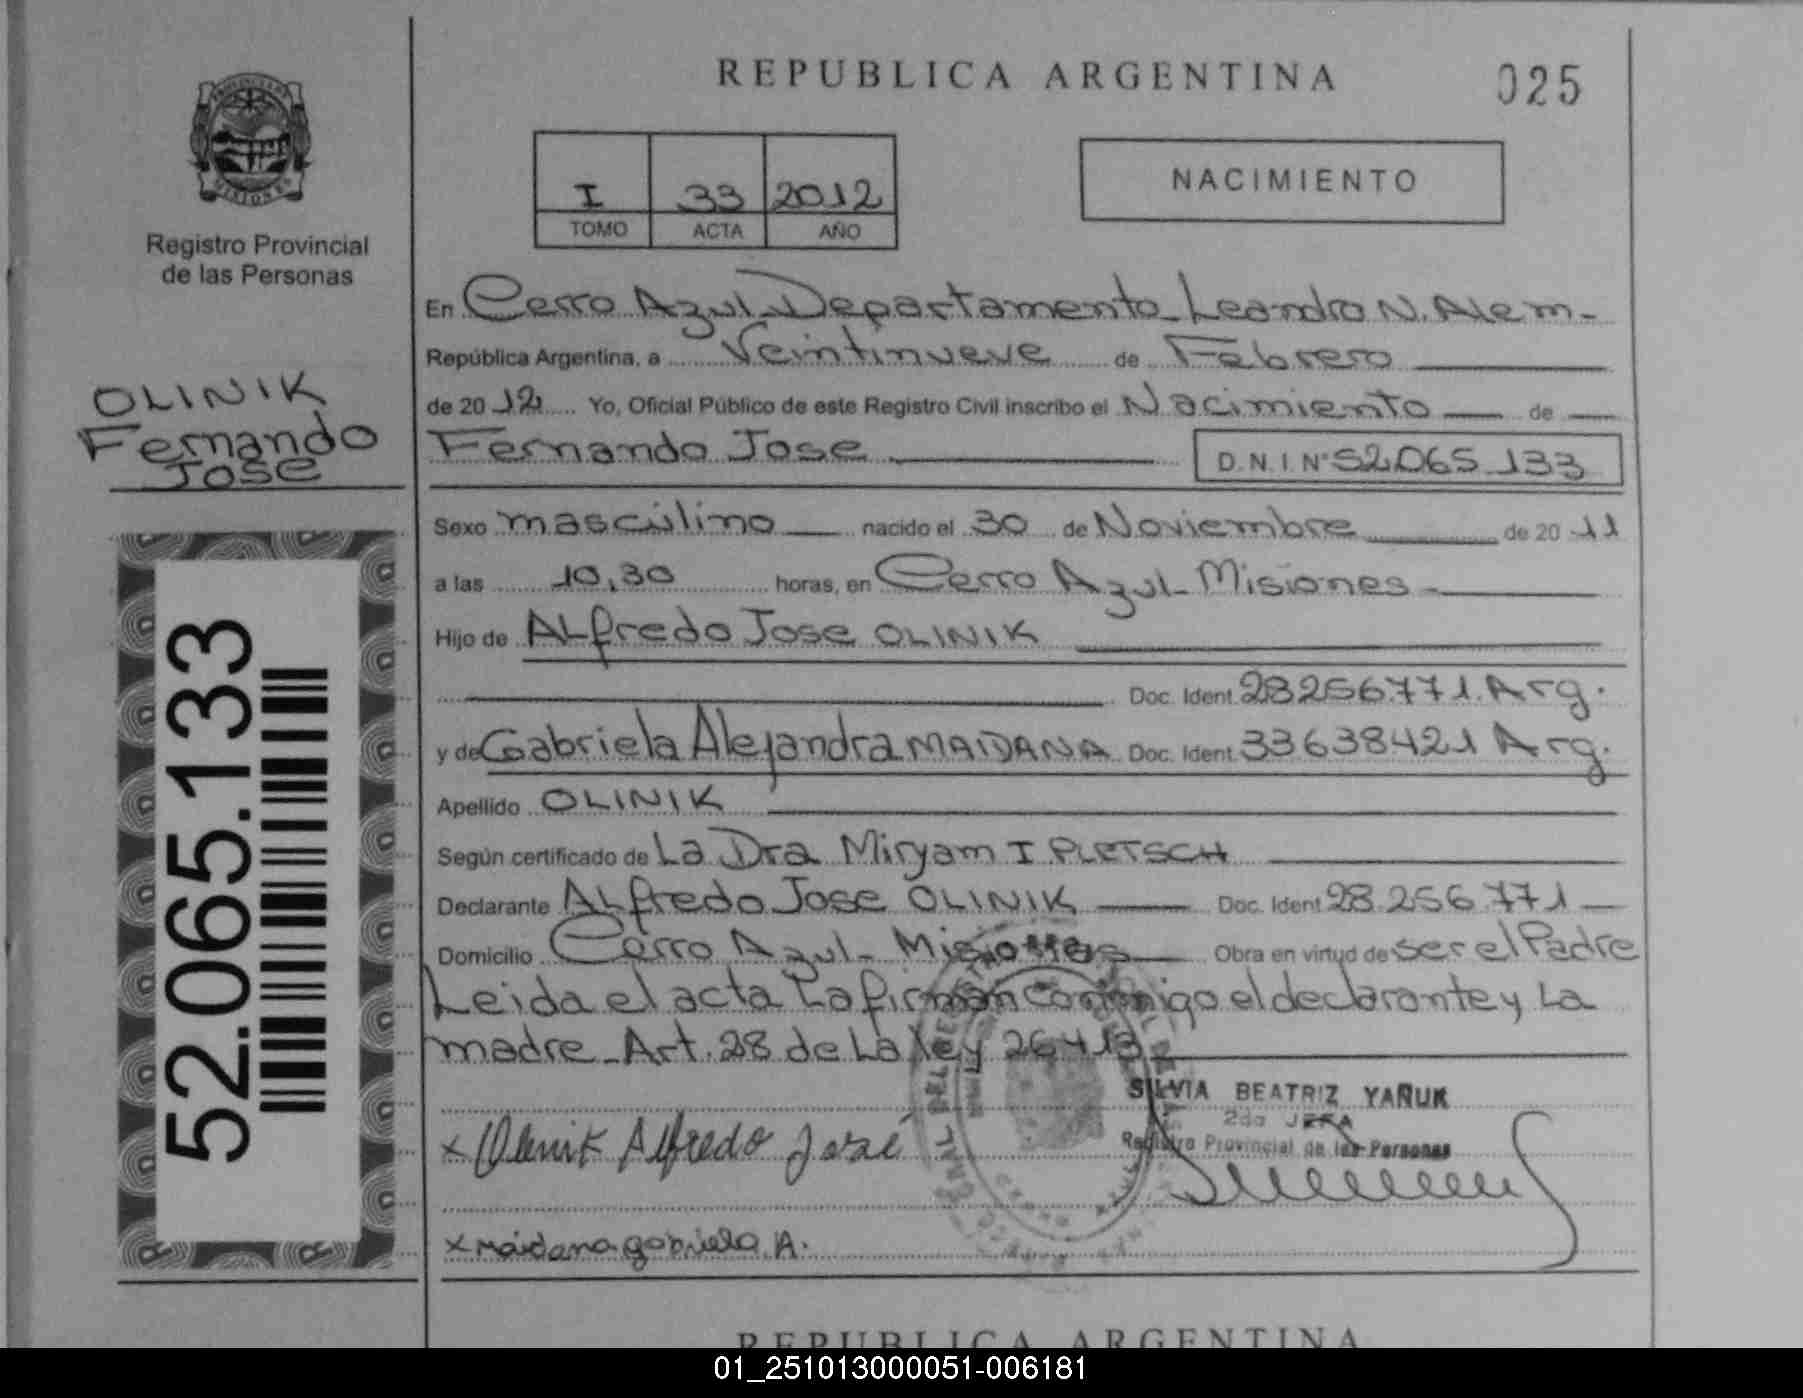 REPUBLICA ARGENTINA
025
PROVINCIA DE
MISIONES
Registro Provincial
de las Personas
I 33 2012
TOMO ACTA AÑO
NACIMIENTO
En Cerro Azul Departamento Leandro N. Alem-
República Argentina, a Veintinueve de Febrero
de 20 12 Yo, Oficial Público de este Registro Civil inscribo el Nacimiento de
OLINIK
Fernando
Jose
Fernando Jose D.N.I Nº 52.065.133
Sexo masculino nacido el 30 de Noviembre de 20 11
a las 10,30 horas, en Cerro Azul- Misiones-
Hijo de Alfredo Jose OLINIK
Doc. Ident. 28256.771. Arg.
y de Gabriela Alejandra MAIDANA Doc. Ident. 33638421 Arg.
Apellido OLINIK
Según certificado de La Dra Miryam I PLETSCH
Declarante Alfredo Jose OLINIK Doc. Ident 28.256.771
Domicilio Cerro Azul- Misiones Obra en virtud de ser el Padre
Leida el acta La firman conmigo el declarante y La
madre- Art. 28 de La ley 26413
52.065.133
SILVIA BEATRIZ YAÑUK
2da JEFA
Registro Provincial de las Personas
x Olinik Alfredo José
x maidana gabriela A.
REPUBLICA ARGENTINA
01_251013000051-006181